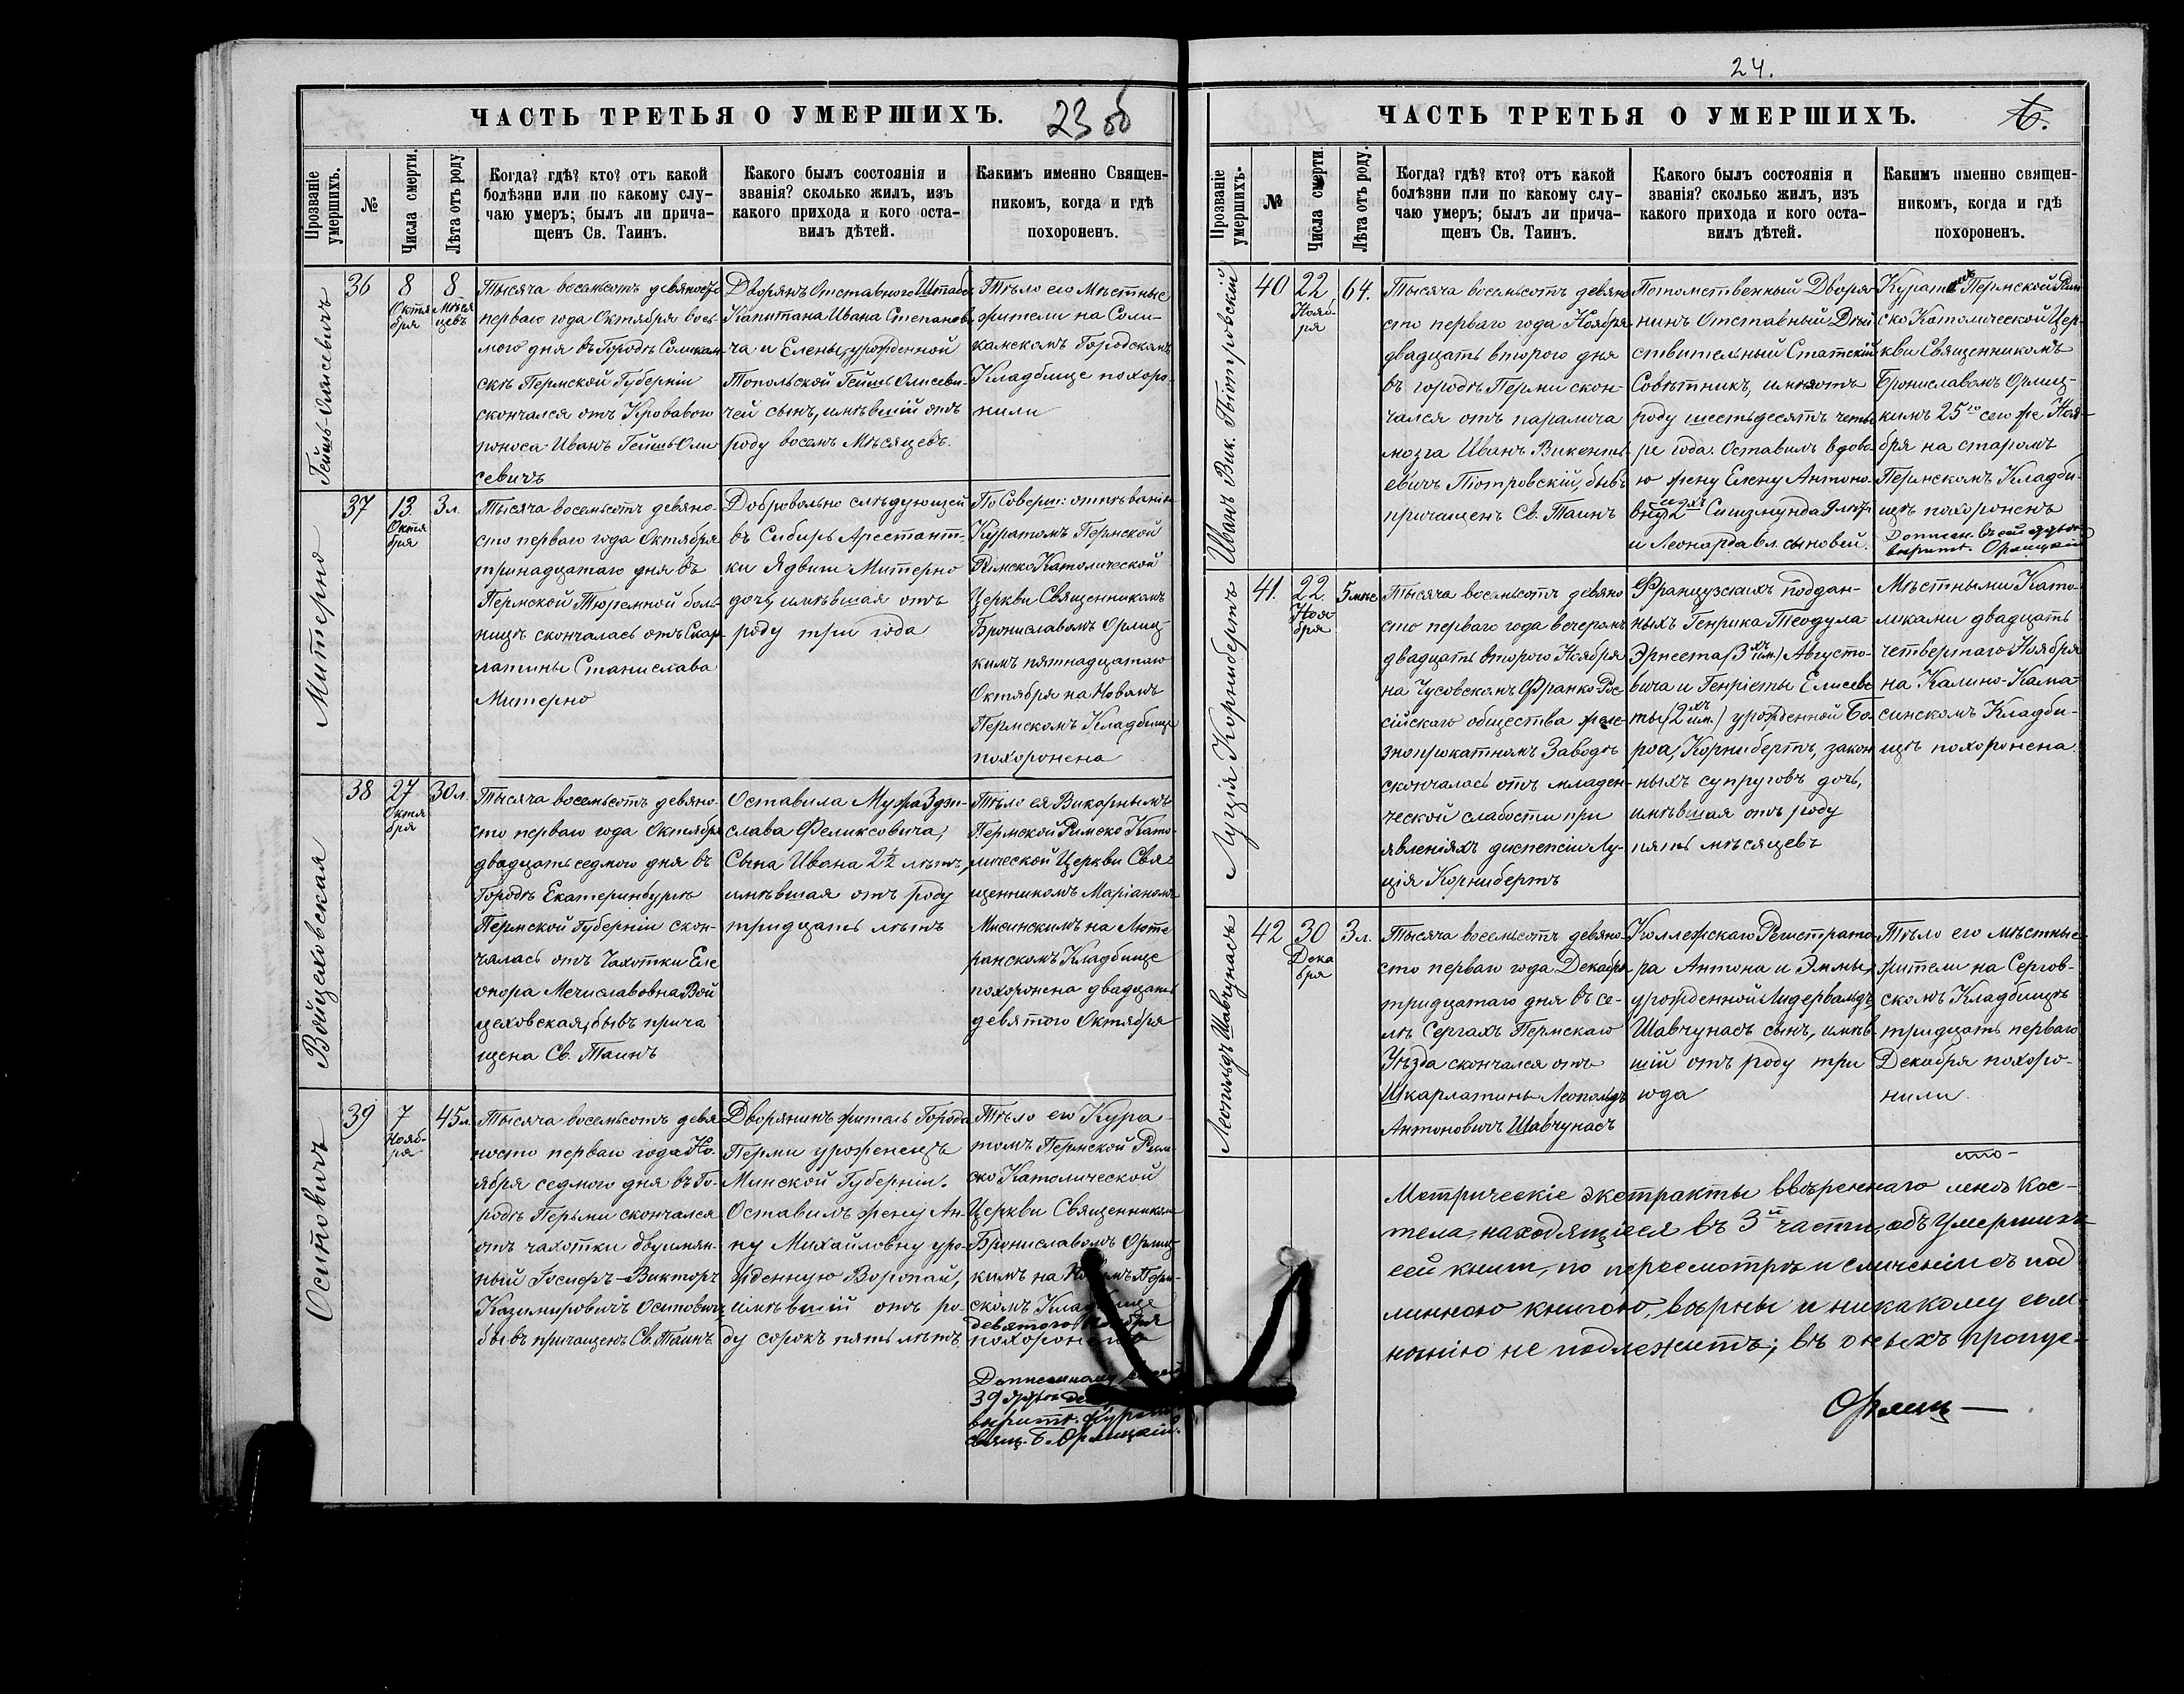 ЧАСТЬ ТРЕТЬЯ О УМЕРШИХЪ.
23 об
Прозваніе умершихъ.
№
Числа смерти.
Лѣта отъ роду.
Когда? гдѣ? кто? отъ какой
болѣзни или по какому слу-
чаю умеръ; былъ ли прича-
щенъ Св. Таинъ.
Какого былъ состоянія и
званія? сколько жилъ, изъ
какого прихода и кого оста-
вилъ дѣтей.
Какимъ именно Священ-
никомъ, когда и гдѣ
похороненъ.
Гейшъ-Олисевичъ
36
8
Октя
бря
8
Мѣся
цевъ
Тысяча восемьсотъ девяносто
перваго года Октября вось-
мого дня въ Городѣ Соликам-
скѣ Пермской Губерніи
скончался отъ Кроваваго
поноса Иванъ Гейшъ-Оли
севичъ
Дворянъ Отставного Штабсъ
Капитана Ивана Степанови-
ча и Елены, урожденной
Топольской Гейшъ Олисеви-
чей сынъ, имѣвшій отъ
роду восемь Мѣсяцевъ.
Тѣло его Мѣстные
жители на Соли-
камскомъ Городскомъ
Кладбище похоро-
нили
Митерно
37
13
Октя
бря
3 л.
Тысяча восемьсотъ девяно-
сто перваго года Октября
тринадцатаго дня въ
Пермской Тюремной боль-
ницѣ скончалась отъ Скар-
латины Станислава
Митерно
Добровольно слѣдующей
въ Сибирь Арестант-
ки Ядвиги Митерно
дочь имѣвшая отъ
роду три года
По Соверш: отпѣваніи
Куратомъ Пермской
Римско Католической
Церкви Священникомъ
Брониславомъ Орлиц-
кимъ пятнадцатаго
Октября на Новомъ
Пермскомъ Кладбище
похоронена
Войцеховская
38
27
Октя
бря
30 л.
Тысяча восемьсотъ девяно-
сто перваго года Октября
двадцать седмого дня въ
Городѣ Екатеринбургѣ
Пермской Губерніи скон-
чалась отъ Чахотки Еле
онора Мечиславовна Вой
цеховская, бывъ прича
щена Св. Таинъ
Оставила Мужа Здзи-
слава Феликсовича,
Сына Ивана 2½ лѣтъ,
имѣвшая отъ роду
тридцать лѣтъ
Тѣло ея Викарнымъ
Пермской Римско Като-
лической Церкви Свя-
щенникомъ Маріаномъ
Мисинскимъ на Люте
ранскомъ Кладбище
похоронена двадцать
девятого Октября
Осиповичъ
39
7
Нояб-
ря
45 л.
Тысяча восемьсотъ девя
носто перваго года Но-
ября седмого дня въ Го-
родѣ Перьми скончался
отъ чахотки двуимян-
ный Госифъ-Викторъ
Казимировичъ Осиповичъ
бывъ причащенъ Св. Таинъ
Дворянинъ житель Города
Перми уроженецъ
Минской Губерніи.
Оставилъ жену Ан-
ну Михайловну уро-
жденную Воропай,
имѣвшій отъ ро-
ду сорокъ пять лѣтъ
Тѣло его Кура-
томъ Пермской Рим-
ско Католической
Церкви Священникомъ
Брониславомъ Орлиц-
кимъ на Новомъ Перм-
скомъ Кладбище
девятого Ноября
похоронено
Дописанному
39 графѣ
вѣрить. Куратъ
Свящ. Б. Орлицкій.
24.
ЧАСТЬ ТРЕТЬЯ О УМЕРШИХЪ.
Прозваніе умершихъ.
№
Числа смерти.
Лѣта отъ роду.
Когда? гдѣ? кто? отъ какой
болѣзни или по какому слу-
чаю умеръ; былъ ли прича-
щенъ Св. Таинъ.
Какого былъ состоянія и
званія? сколько жилъ, изъ
какого прихода и кого оста-
вилъ дѣтей.
Какимъ именно священ-
никомъ, когда и гдѣ
похороненъ.
Иванъ Вик. Піотровскій
40
22
Нояб-
ря
64.
Тысяча восемьсотъ девяно
сто перваго года Ноября
двадцать второго дня
въ городѣ Перми скон-
чался отъ паралича
мозга Иванъ Викенть-
евичъ Піотровскій, бывъ
причащенъ Св. Таинъ
Потомственный Дворя-
нинъ Отставный Дѣй
ствительный Статскій
Совѣтникъ, имѣя отъ
роду шестьдесятъ четы
ре года. Оставилъ вдов-
ю жену Елену Антоно-
вну 2хъ Сигизмунда
и Леонарда вл. сыновей.
Куратомъ Пермской Рим
ско Католической Цер-
кви Священникомъ
Брониславомъ Орлиц-
кимъ 25го сего же Ноя-
бря на старомъ
Пермскомъ Кладби-
щѣ похороненъ
Дописан. въ сей графѣ
вѣрить. Орлицкій
Луція Корнибертъ
41.
22.
Ноя-
бря
5 мѣс
Тысяча восемьсотъ девяно
сто перваго года вечеромъ
двадцать второго Ноября
на Чусовскомъ Франко-Рос-
сійскаго общества желе-
знопрокатномъ Заводѣ
скончалась отъ младен-
ческой слабости при
явленіяхъ диспепсіи Лу-
ція Корнибертъ
Французскихъ поддан-
ныхъ Генрика Теодула
Эрнеста (3хъ им.) Августо-
вича и Генріеты Елисаве
ты (2хъ им.) урожденной Бо-
роа, Корнибертъ, закон
ныхъ супруговъ дочь,
имѣвшая отъ роду
пять мѣсяцевъ
Мѣстными Като-
ликами двадцать
четвертаго Ноября
на Калино-Кама-
синскомъ Кладби-
щѣ похоронена.
Леопольдъ Шавчунасъ
42
30
Дека
бря
3 л.
Тысяча восемьсотъ девяно-
сто перваго года Декабря
тридцатаго дня въ се-
лѣ Сергахъ Пермскаго
Уѣзда скончался отъ
Шкарлатины Леопольдъ
Антоновичъ Шавчунасъ
Коллежскаго Регистрато-
ра Антона и Эммы,
урожденной Лидервальдъ
Шавчунасъ сынъ, имѣв
шій отъ роду три
года
Тѣло его мѣстные
жители на Сергов-
скомъ Кладбищѣ
тридцать перваго
Декабря похоро-
нили.
Метрическіе экстракты ввѣреннаго мнѣ Кос-
тела, находящіеся въ 3й части, объ Умершихъ
сей книги, по пересмотрѣ и сличеніи съ под
линною книгою, вѣрны и никакому сом-
нѣнію не подлежитъ; въ оныхъ пропус-